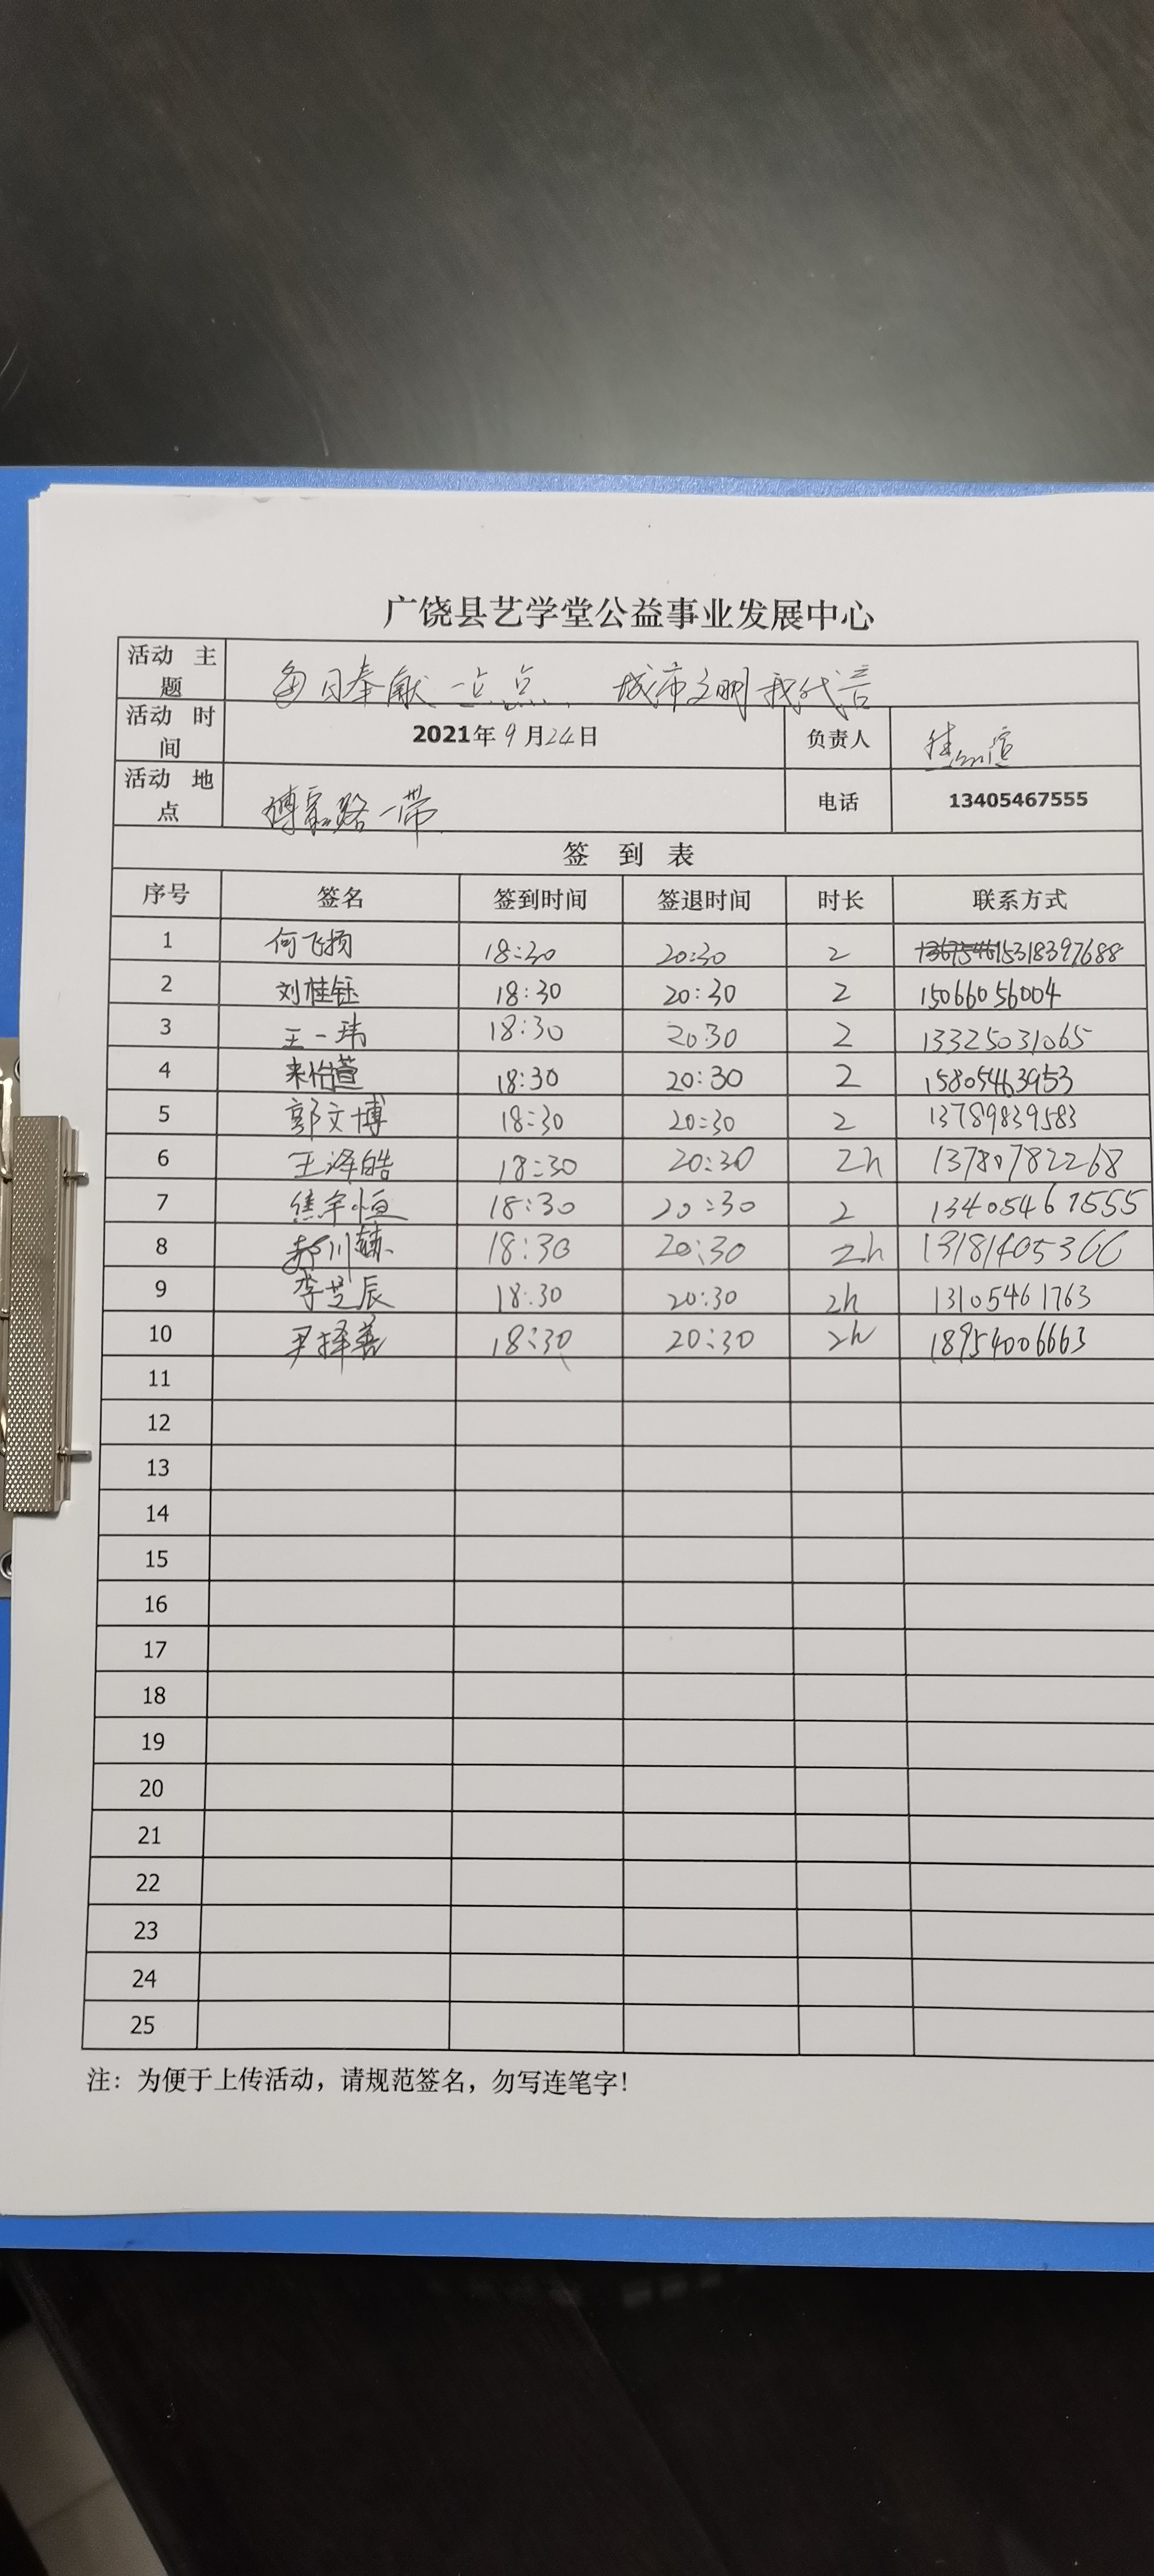 广饶县艺学堂公益事业发展中心
活动 主题 每日奉献一点点 城市文明我代言
活动 时间 2021年9月24日 负责人
活动 地点 博 路一带 电话 13405467555
签 到 表
序号 签名 签到时间 签退时间 时长 联系方式
1 何飞扬 18:30 20:30 2 15318397688
2 刘桂钰 18:30 20:30 2 15066056004
3 王一玮 18:30 20:30 2 13325031065
4 来怡萱 18:30 20:30 2 15805463953
5 郭文博 18:30 20:30 2 13789839583
6 王泽皓 18:30 20:30 2h 13780782268
7 焦宇恒 18:30 20:30 2 13405467555
8 18:30 20:30 2h 13181405366
9 李芝辰 18:30 20:30 2h 13105461763
10 尹择善 18:30 20:30 2h 18954006663
11
12
13
14
15
16
17
18
19
20
21
22
23
24
25
注：为便于上传活动，请规范签名，勿写连笔字！